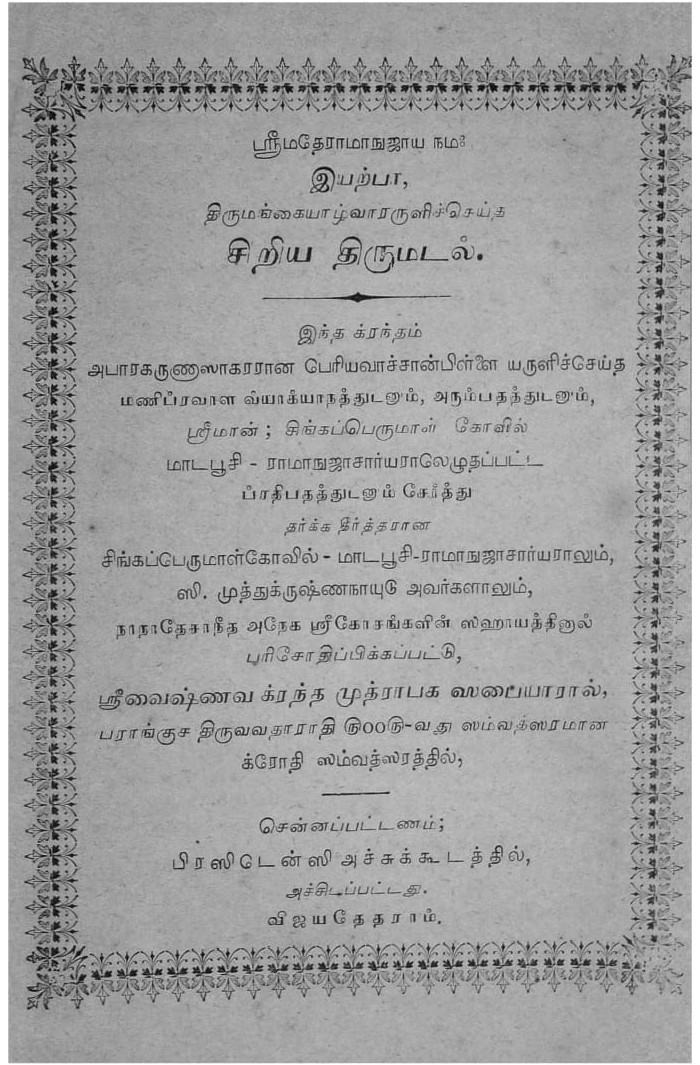 ஸ்ரீமதேராமாநுஜாய நமః
இயற்பா,
திருமங்கையாழ்வாரருளிச்செய்த
சிறிய திருமடல்.
இந்த க்ரந்தம்
அபாரகருணாஸாகரரான பேரியவாச்சான்பிள்ளை யருளிச்செய்த
மணிப்ரவாள வ்யாக்யாநத்துடனும், அரும்பதத்துடனும்,
ஸ்ரீமான் ; சிங்கப்பெருமாள் கோவில்
மாடபூசி - ராமாநுஜாசார்யராலெழுதப்பட்ட
ப்ரதிபதத்துடனும் சேர்த்து
தர்க்க தீர்த்தரான
சிங்கப்பேருமாள்கோவில் - மாடபூசி-ராமாநுஜாசார்யராலும்,
ஸி. முத்துக்ருஷ்ணநாயுடு அவர்களாலும்,
நாநாதேசாநீத அநேக ஸ்ரீகோசங்களின் ஸஹாயத்தினால்
பரிசோதிப்பிக்கப்பட்டு,
ஸ்ரீவைஷ்ணவ க்ரந்த முத்ராபக ஸபையாரால்,
பராங்குச திருவவதாராதி ௫00௫-வது ஸம்வத்ஸரமான
க்ரோதி ஸம்வத்ஸரத்தில்,
சென்னப்பட்டணம்;
பிரஸிடென்ஸி அச்சுக்கூடத்தில்,
அச்சிடப்பட்டது.
விஜயதேதராம்.